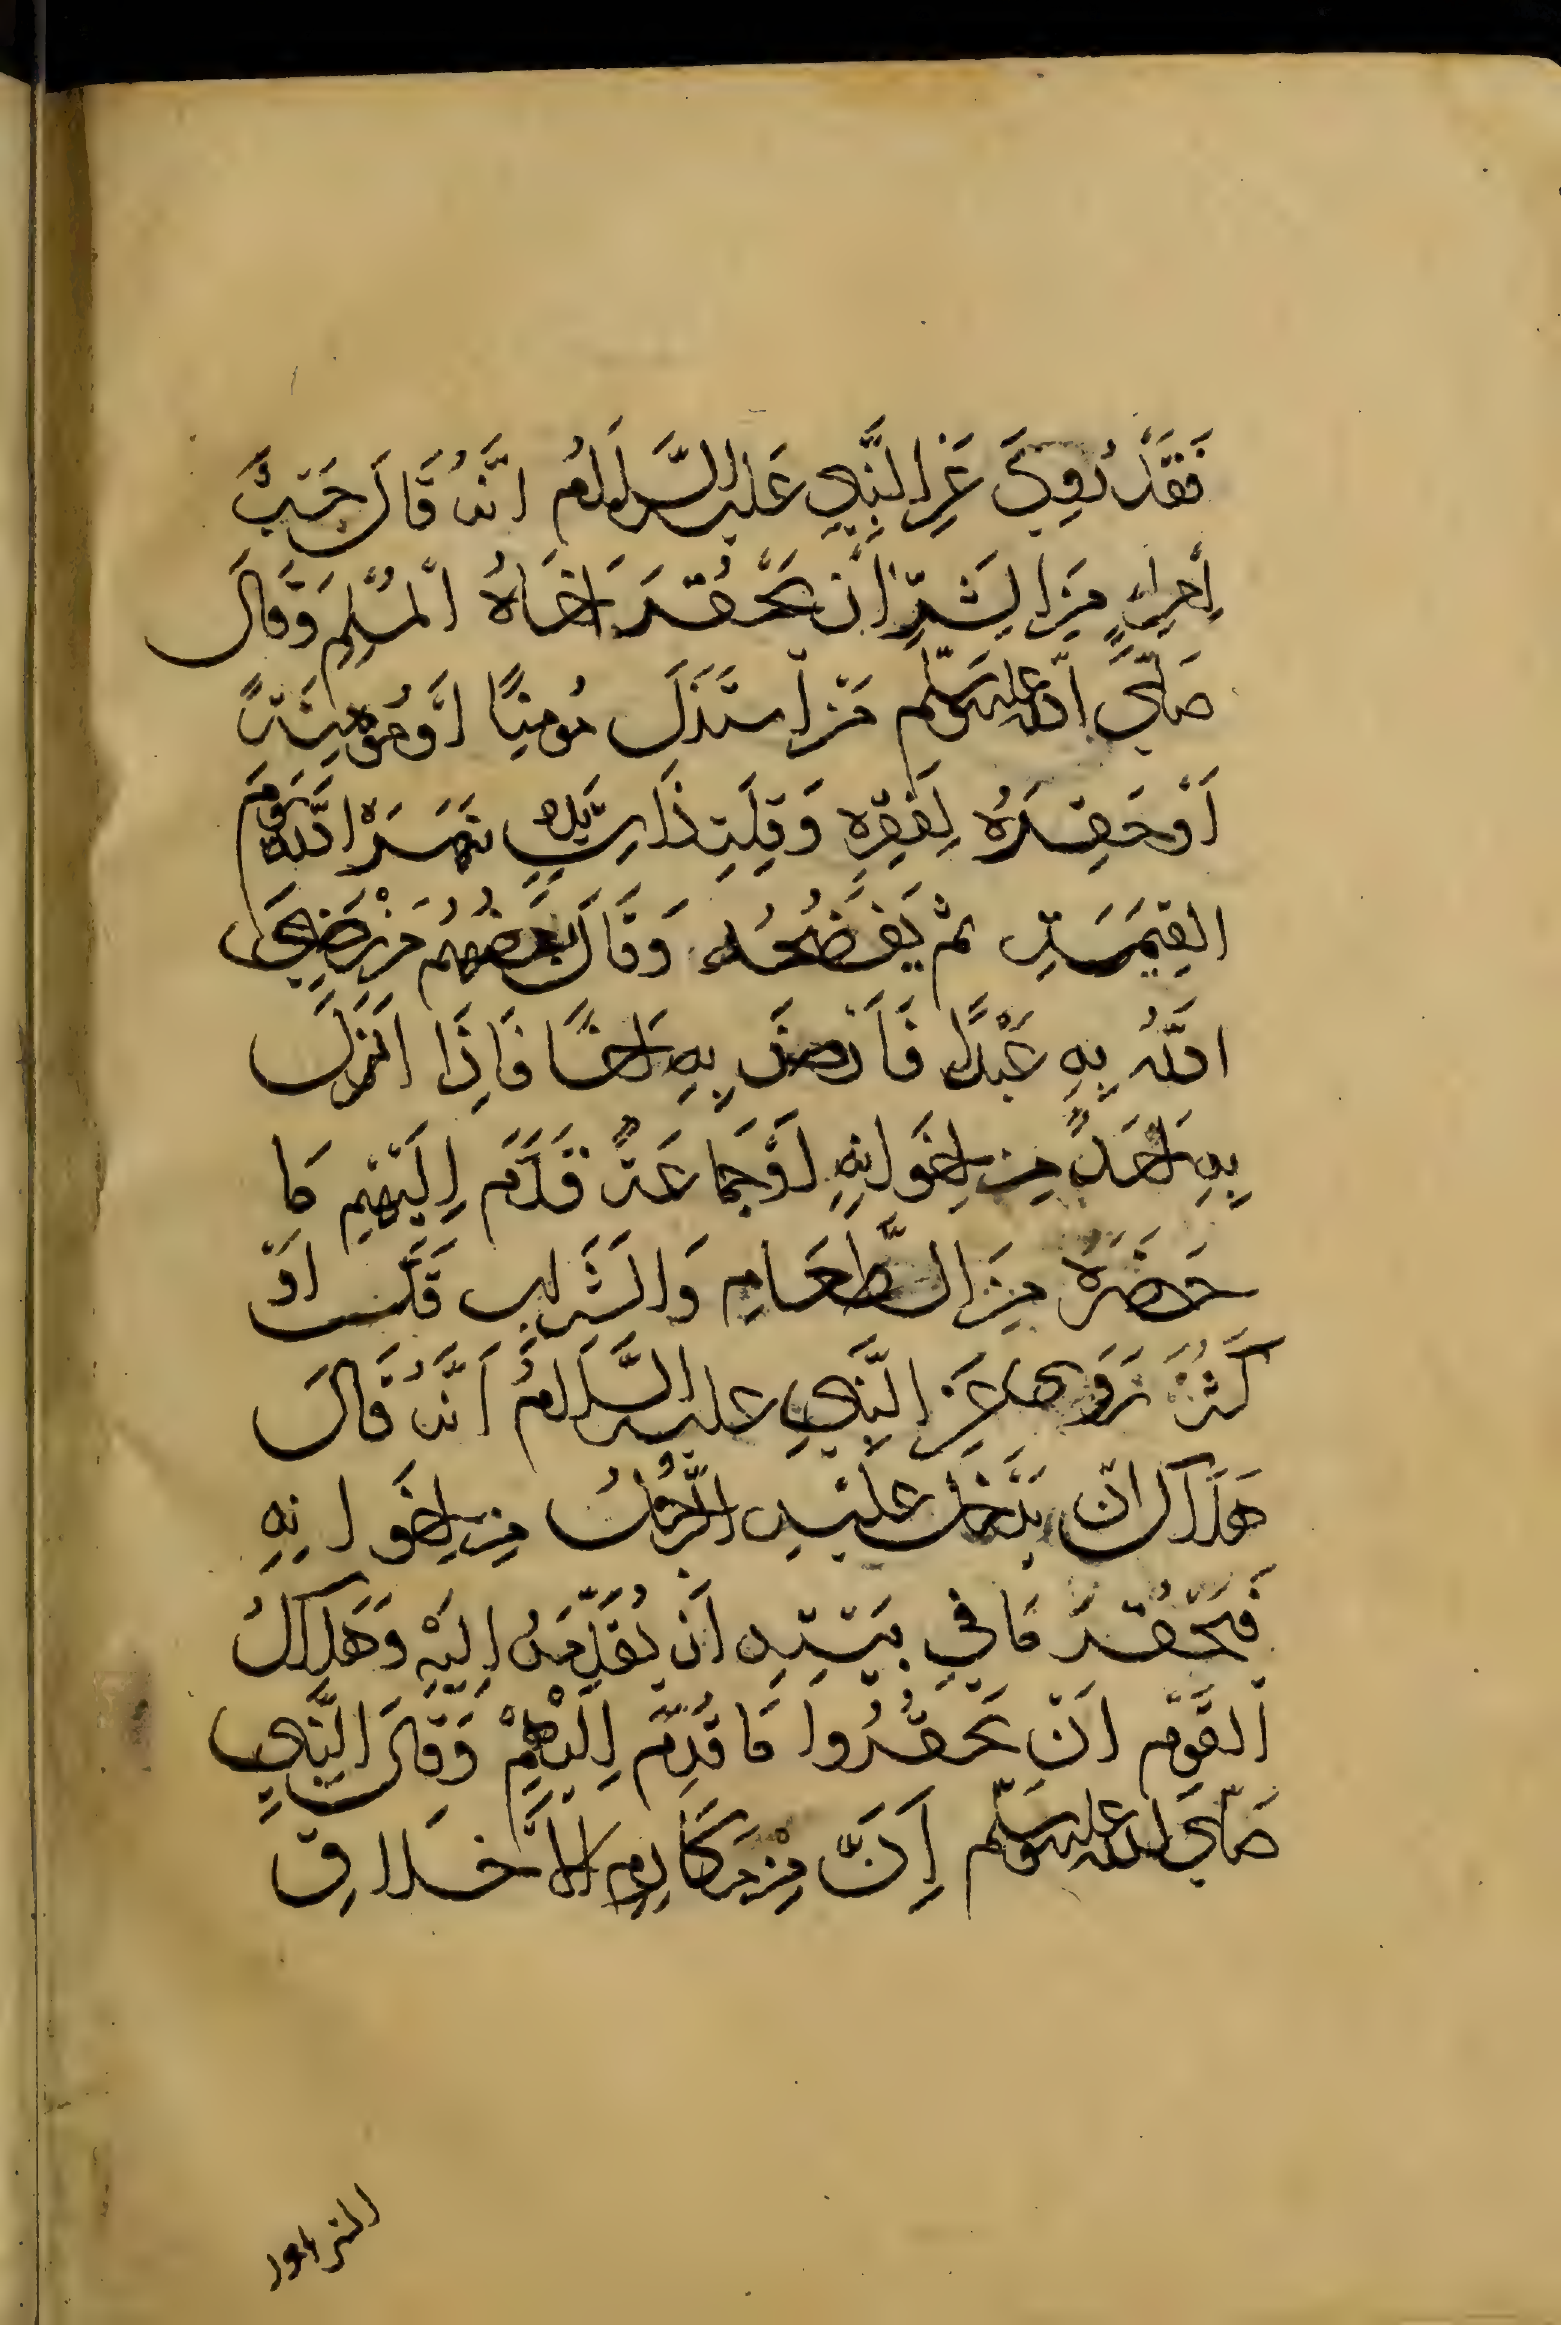 فَقَدْ رُوِيَ عَنِ النَّبِيِّ عَلَيْهِ السَّلَامُ اَنَّهُ قَالَ حَسْبُ
اِمْرِئٍ مِنَ الشَّرِّ اَنْ يَحْقُرَ اَخَاهُ الْمُسْلِمَ وَقَالَ
صَلَّى اللّٰهُ عَلَيْهِ وَسَلَّمَ مَنْ اسْتَذَلَّ مُومِنًا اَوْ مُؤْمِنَةً
اَوْ حَقَرَهُ لِفَقْرِهِ وَقِلَّةِ ذَاتِ يَدِهِ شَهَرَهُ اللّٰهُ يَوْمَ
الْقِيٰمَةِ ثُمَّ يَفْضَحُهُ وَقَالَ بَعْضُهُمْ مَنْ رَضِيَ
اللّٰهُ بِهِ عَبْدًا فَارْضَ بِهِ اَخًا فَاِذَا اَنْزَلَ
بِهِ اَحَدٌ مِنْ اِخْوَانِهِ اَوْ جَمَاعَةٌ قَدَّمَ اِلَيْهِمْ مَا
حَضَرَهُ مِنَ الطَّعَامِ وَالشَّرَابِ قَلَّتْ اَوْ
كَثُرَتْ رَوَى عَنِ النَّبِيِّ عَلَيْهِ السَّلَامُ اَنَّهُ قَالَ
هَلَاكٌ اَنْ يَدْخُلَ عَلَيْهِ الرَّجُلُ مِنْ اِخْوَانِهِ
فَيَحْقُرَ مَا فِي بَيْتِهِ اَنْ يُقَدِّمَهُ اِلَيْهِ وَهَلَاكُ
الْقَوْمِ اَنْ يَحْقُرُوا مَا قُدِّمَ اِلَيْهِمْ وَقَالَ النَّبِي
صَلَّى اللّٰهُ عَلَيْهِ وَسَلَّمَ اِنَّ مِنْ مَكَارِمِ الْاَخْلَاقِ
التزاور